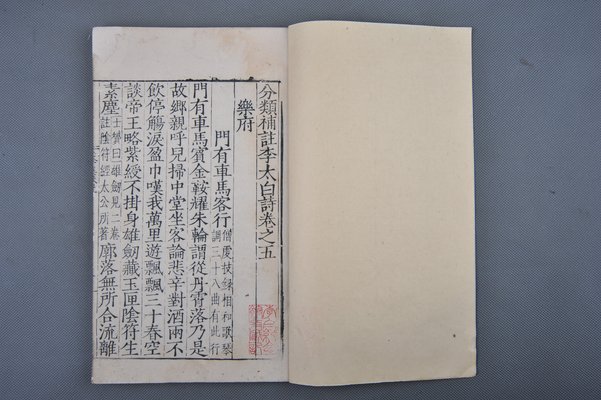 分類補註李太白詩卷之五
樂府
門有車馬客行 僧虔技録相和歌琴調三十八曲有此行
門有車馬賓金鞍耀朱輪謂從丹霄落乃是
故鄉親呼兒掃中堂坐客論悲辛對酒兩不
飲停觴淚盈巾嘆我萬里遊飄飄三十春空
談帝王略紫綬不掛身雄劒藏玉匣陰符生
素塵 士贇曰雄劒見二卷註陰符經太公所著 廓落無所合流離